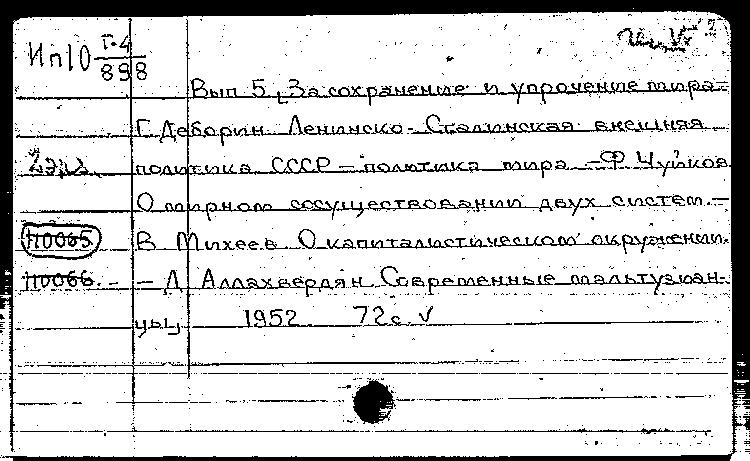 Ип10 Г-4/898
Вып 5, За сохранение и упрочение мира -
Г. Деборин. Ленинско-Сталинская внешняя
2 экз. политика СССР - политика мира - Ф. Чуйков
О мирном сосуществовании двух систем. -
П0065 В Михеев. О капиталистическом окружении.
П0066. - - Д Аллахвердян. Современные мальтузиан-
цы, 1952 72с. V